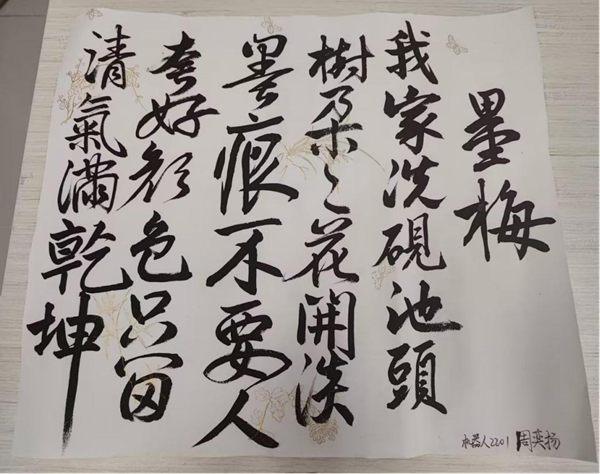 墨梅
我家洗硯池頭
樹朵々花開淡
墨痕不要人
夸好顔色只留
清氣滿乾坤
机器人2201 周奕扬